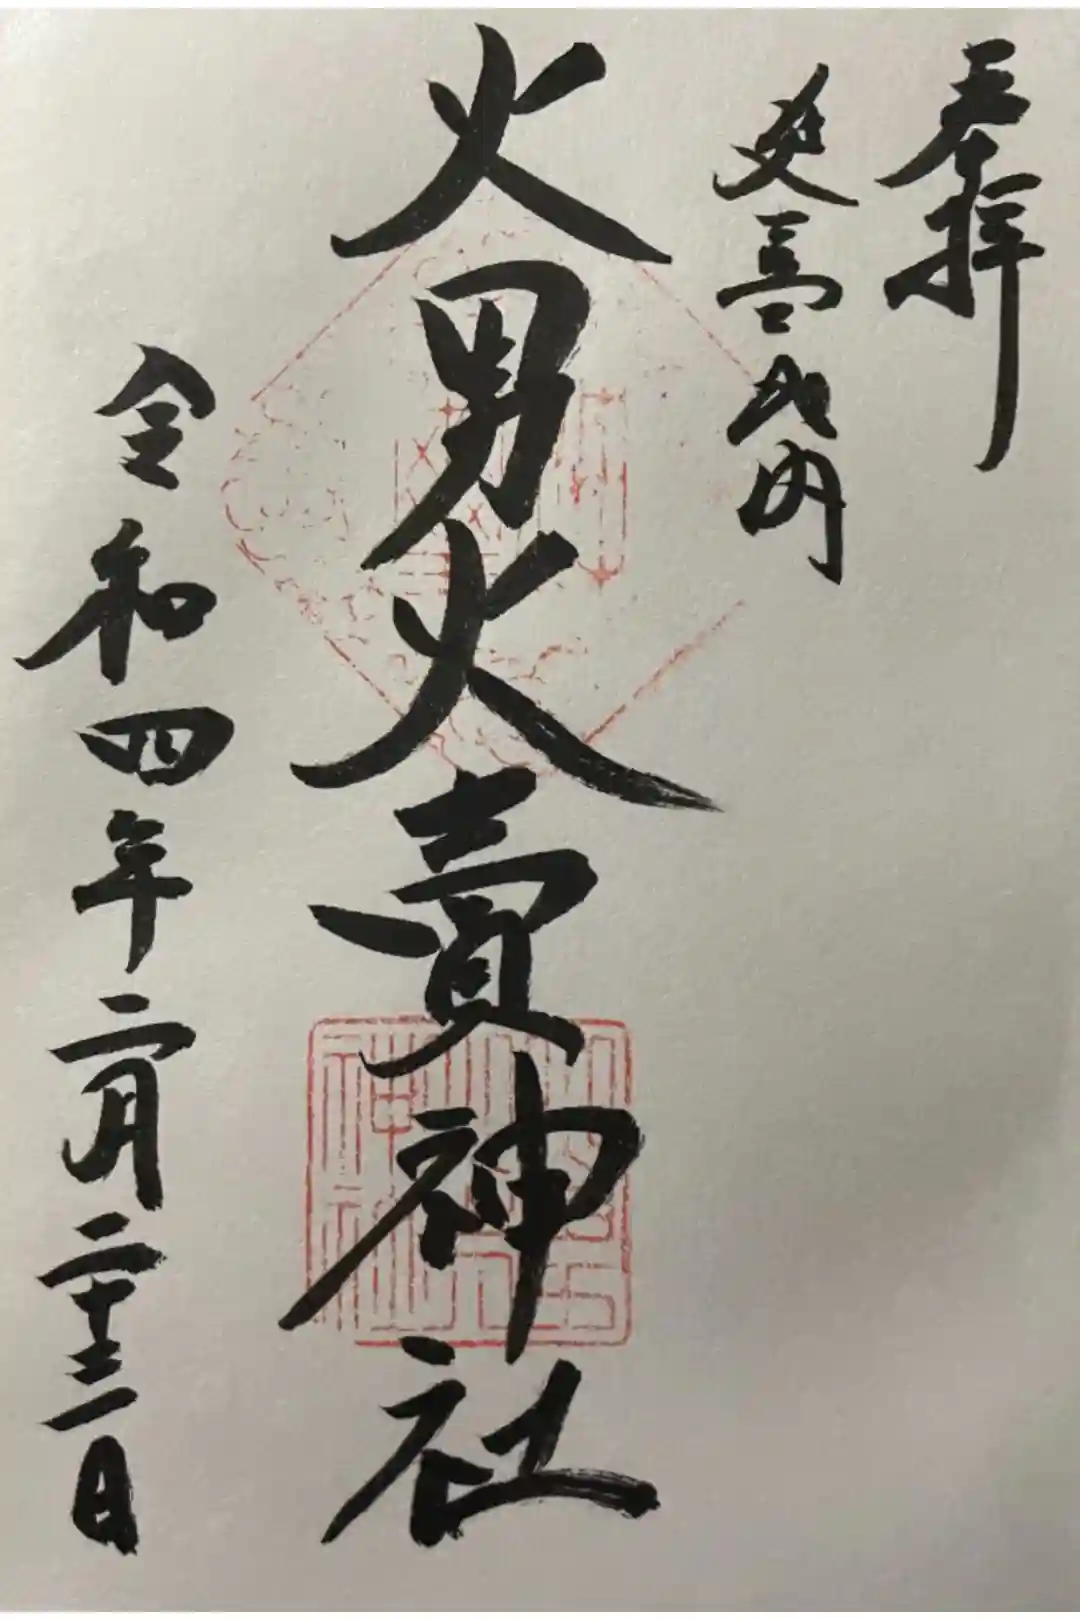 奉拝
延喜式内
火男火賣神社
令和四年二月二十三日